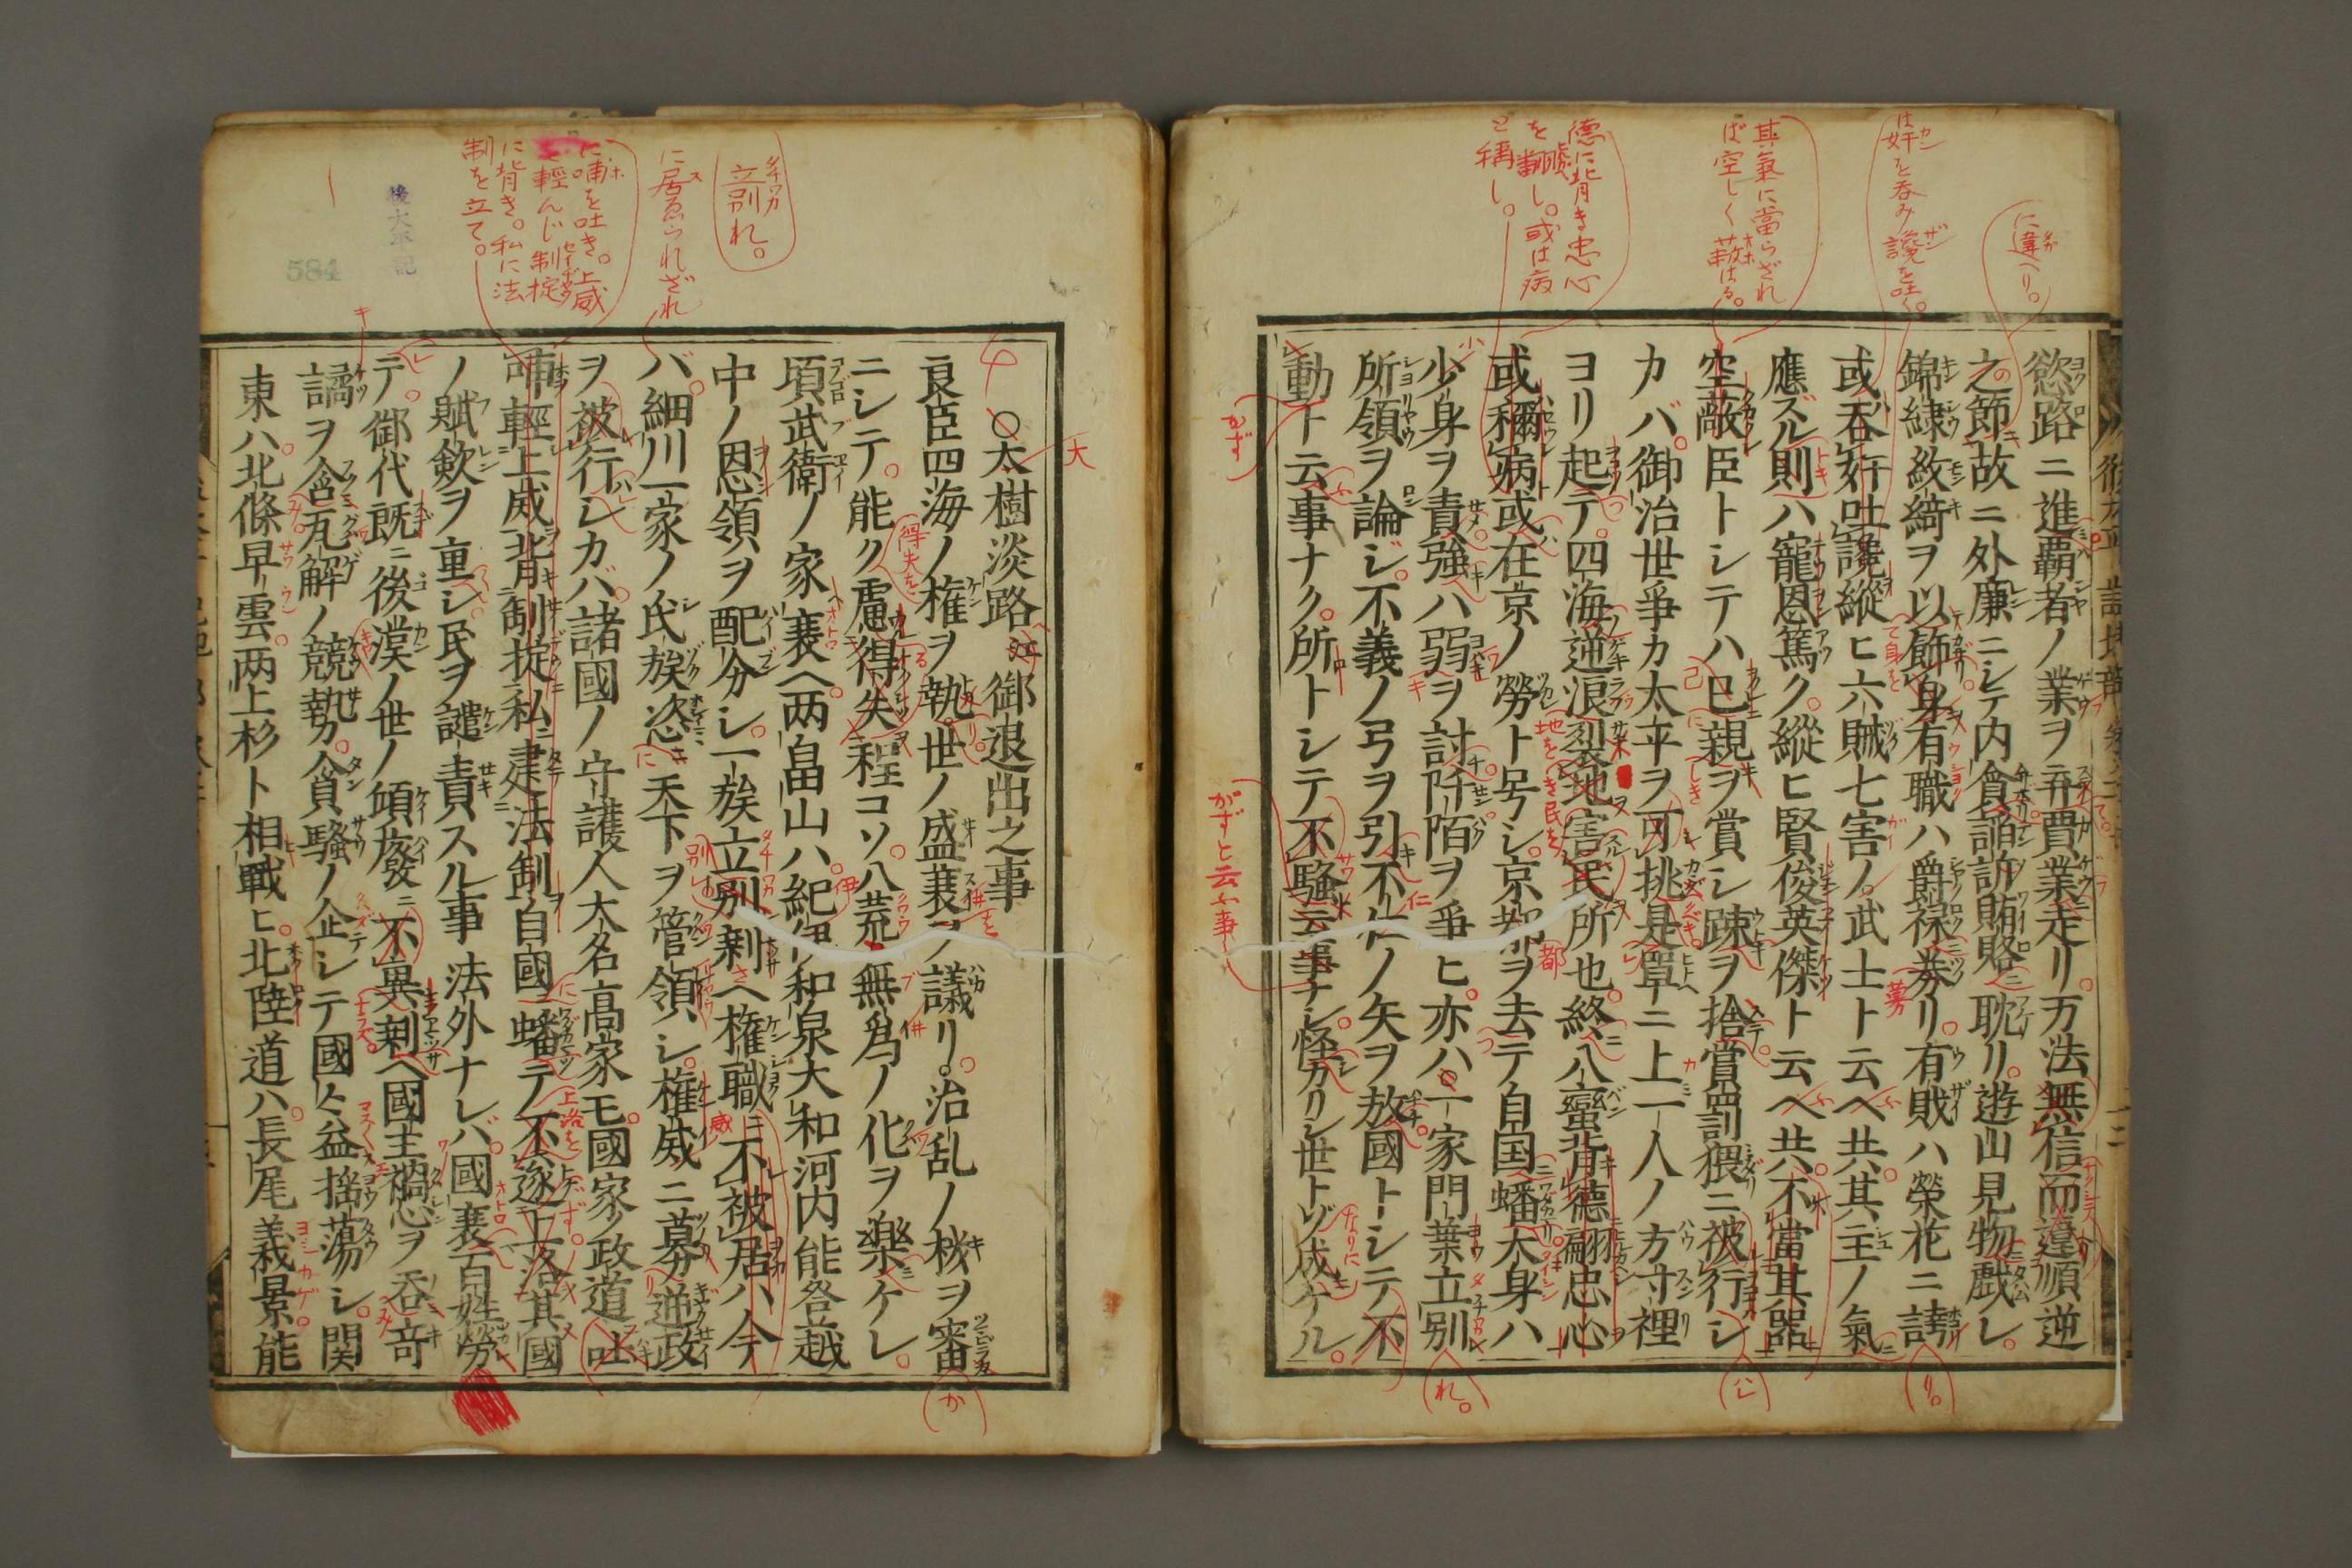 慾路ニ進覇者ノ業ヲ弃賈業走リ。万法無信而違順逆
之節故ニ外廉ニシテ内貪諂訴賄賂耽リ。遊山見物戯レ。
錦繍紋綺ヲ以飾身有職ハ爵禄券リ。有賊ハ榮花ニ誇
或呑奸吐讒縱ヒ六賊七害ノ武士ト云ヘ共。其主ノ氣
應ズル則ハ寵恩篤ク。縱ヒ賢俊英傑ト云ヘ共不當其器
空蔽臣トシテハ已親ヲ賞シ踈ヲ捨賞罰猥ニ被行シ
カバ。御治世爭カ太平ヲ可挑是單ニ上一人ノ方寸裡
ヨリ起テ。四海逆浪裂地害民所也。終八蠻背德翻忠心
或稱病或在京ノ勞ト号シ。京都ヲ去テ自国蟠大身ハ
少身ヲ責強ハ弱ヲ討阡陌ヲ爭ヒ。亦ハ一家門葉立別
所領ヲ論ジ。不義ノ弓ヲ引不仁ノ矢ヲ放國トシテ不
動ト云事ナク。所トシテ不騒云事ナシ。怪カリシ世トゾ成ケル。
に違へり。
は奸を呑み讒を吐く。
其氣に當らざれ
ば空しく蔽はる。
德に背き忠心
を翻し。或は病
と稱し。
がずと云ふ事
○大樹淡路江御退出之事
良臣四海ノ権ヲ執。世ノ盛衰ヲ議リ。治乱ノ機ヲ審
ニシテ。能ク慮得失程コソ。八荒無為ノ化ヲ楽ケレ。
頃武衛ノ家衰ヘ。两畠山ハ紀伊和泉大和河内能登越
中ノ恩領ヲ配分シ。一族立別剰ヘ権職ニ不被居ハ今テ
バ細川一家ノ氏族恣天下ヲ管領シ。権威ニ募逆政
ヲ被行シカバ。諸國ノ守護人大名高家モ。國家ノ政道吐
哺輕上威背制掟私建法制自國蟠テ不遂上洛其國
ノ賦斂ヲ重シ民ヲ譴責スル事法外ナレバ。國衰百姓勞
テ。御代既ニ後漢ノ世ノ傾廢ニ不異剰ヘ國主禍心ヲ呑奇
譎ヲ含瓦解ノ競勢。貪騒ノ企シテ國々益揺蕩シ。関
東ハ北條早雲两上杉ト相戰ヒ。北陸道ハ長尾義景能
立別れ。
に居ゑられざれ
に哺を吐き。上威
を輕んじ制掟
に背き。私に法
制を立て。
後太平記
584